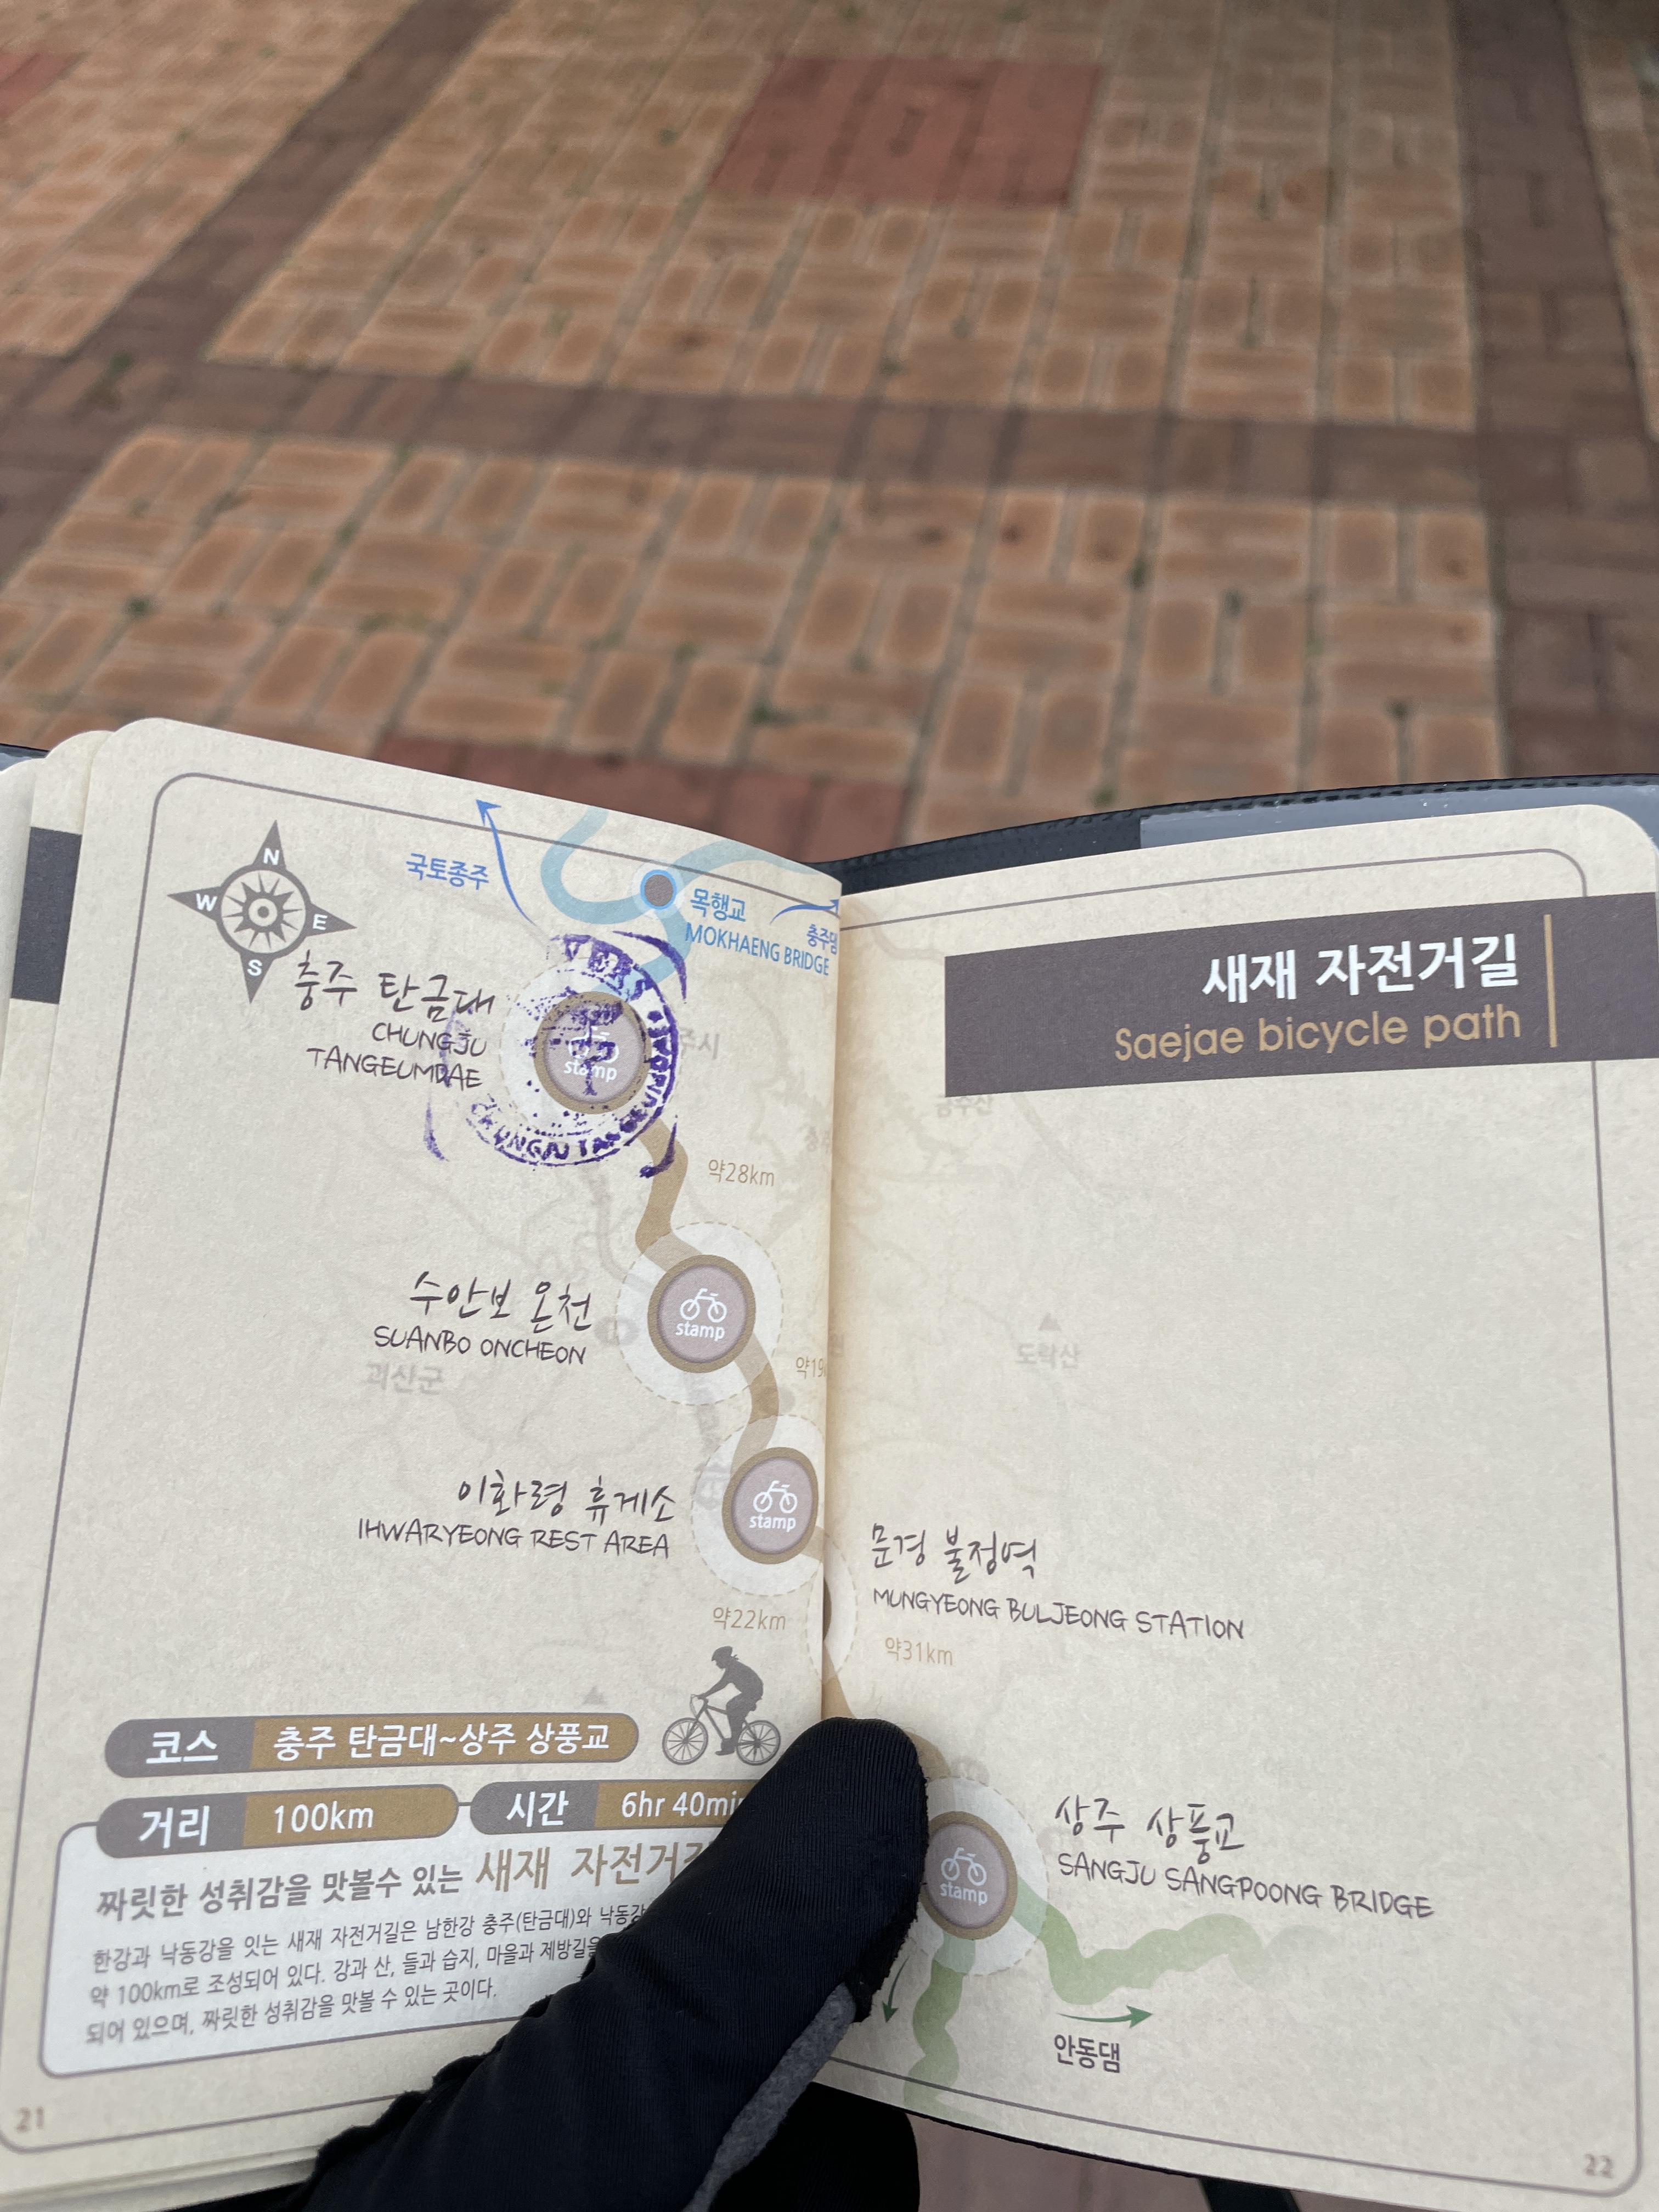 N
W
E
S
국토종주
목행교
MOKHAENG BRIDGE
충주댐
충주 탄금대
CHUNGJU
TANGEUMDAE
stamp
약28km
수안보 온천
SUANBO ONCHEON
stamp
괴산군
이화령 휴게소
IHWARYEONG REST AREA
stamp
약22km
코스 충주 탄금대~상주 상풍교
거리 100km 시간 6hr 40min
짜릿한 성취감을 맛볼수 있는 새재 자전거길
한강과 낙동강을 잇는 새재 자전거길은 남한강 충주(탄금대)와 낙동강
약 100km로 조성되어 있다. 강과 산, 들과 습지, 마을과 제방길을
되어 있으며, 짜릿한 성취감을 맛볼 수 있는 곳이다.
21
새재 자전거길
Saejae bicycle path
도락산
문경 불정역
MUNGYEONG BULJEONG STATION
약31km
상주 상풍교
SANGJU SANGPOONG BRIDGE
stamp
안동댐
22